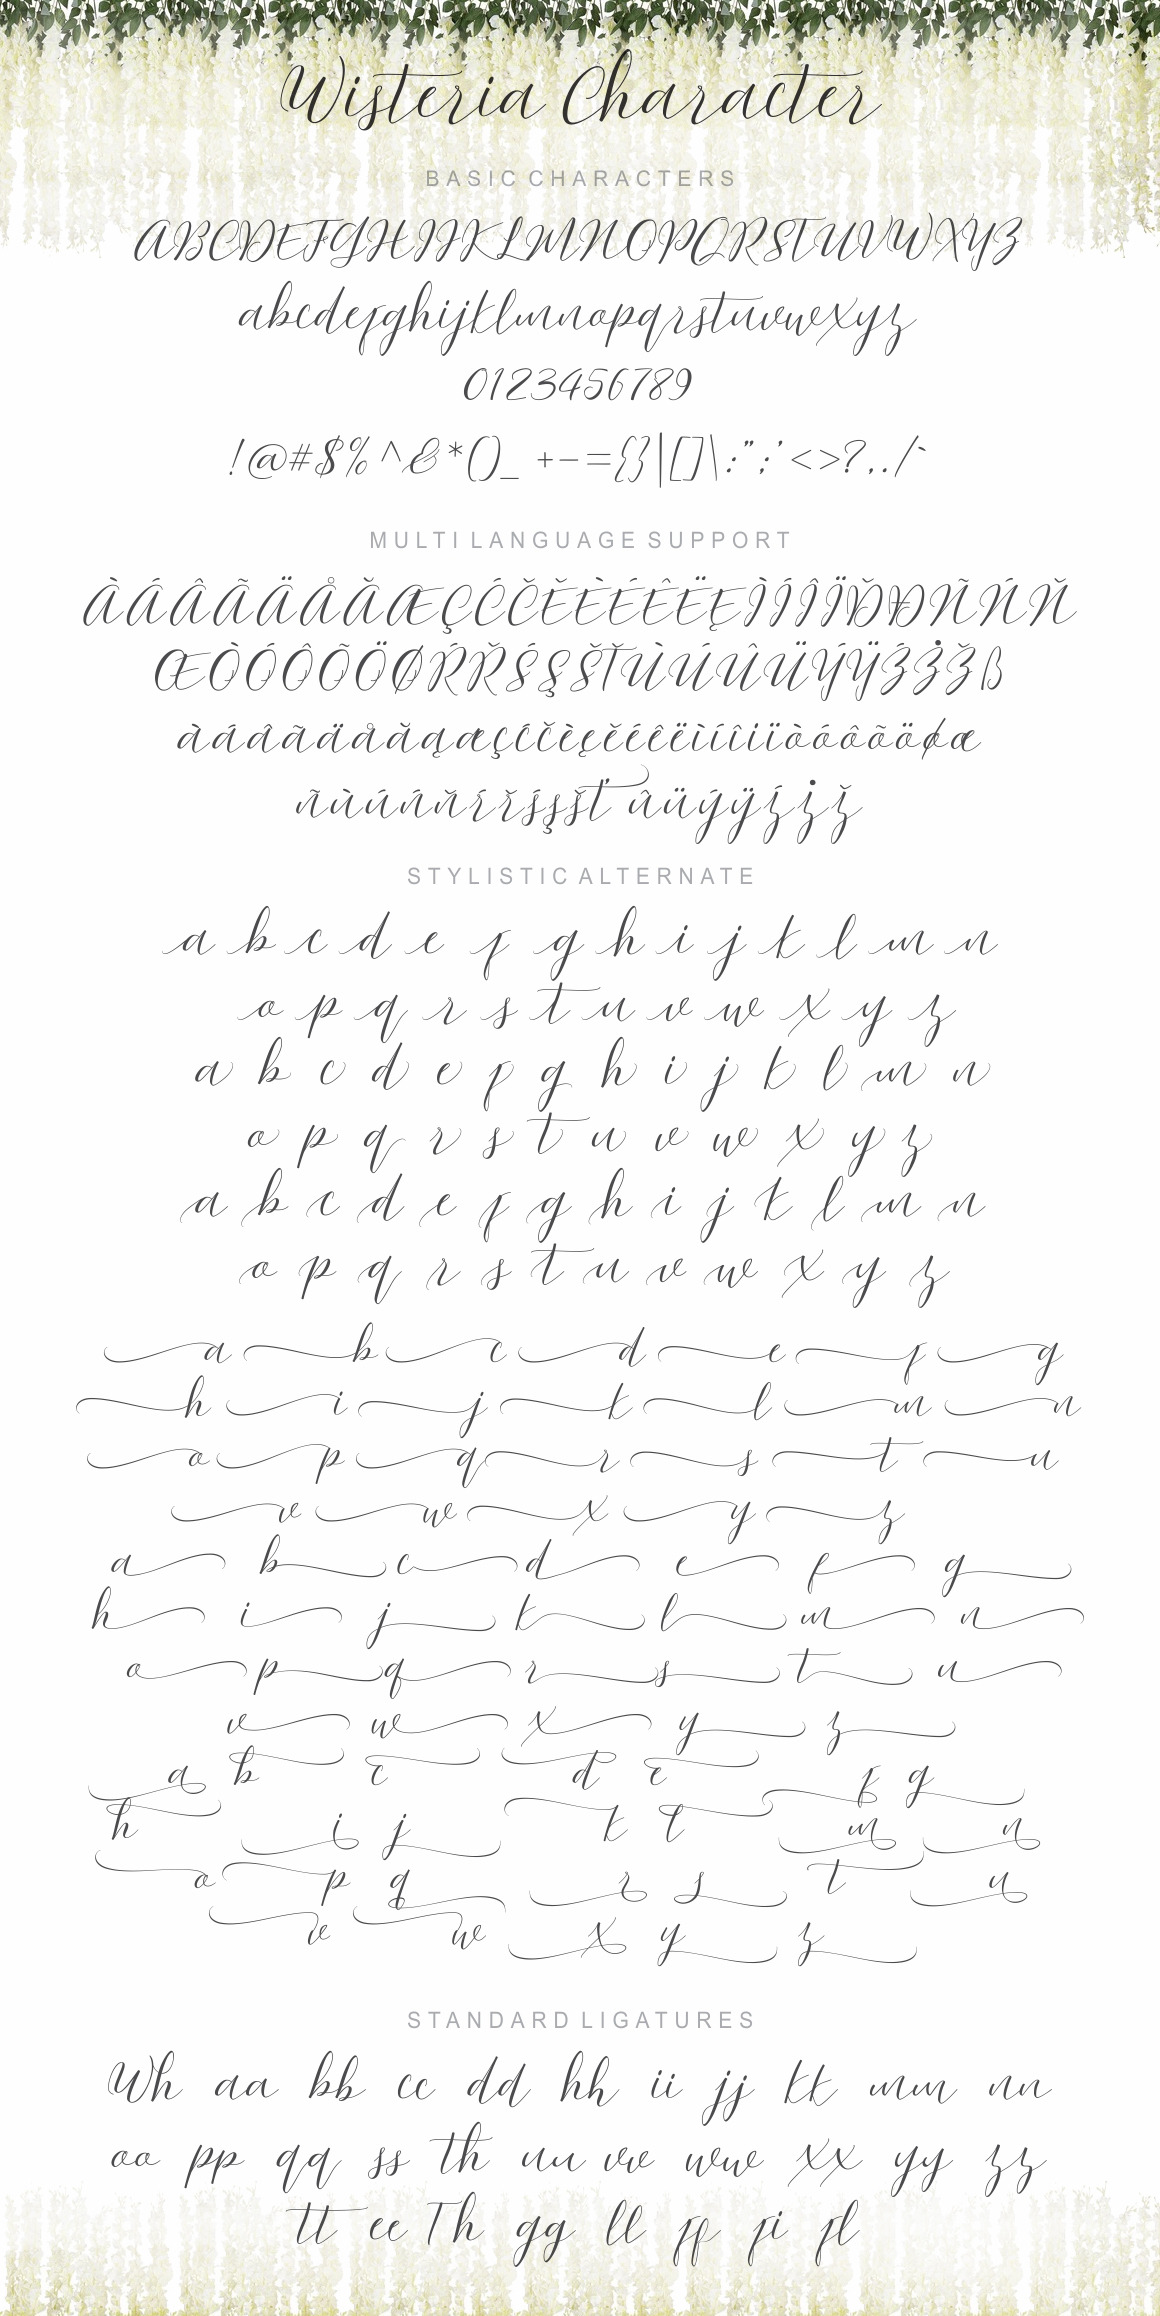 Wisteria Character
BASIC CHARACTERS
ABCDEFGHIJKLMNOPQRSTUVWXYZ
abcdefghijklmnopqrstuvwxyz
0123456789
!@#$%^&*()_ +-={}|[]\:";'<>?,./`
MULTI LANGUAGE SUPPORT
ÀÁÂÃÄÅĂÆÇĆČĚÈÉÊËĘÌÍÎÏĎĐÑŃŇ
ŒÒÓÔÕÖØŔŘŚŞŠŤÙÚÛÜÝŸŹŻŽß
àáâãäåăąæçćčèęěéêëìíîiïòóôõöøœ
ñùúńňŕřśşšť ûüýÿźżž
STYLISTIC ALTERNATE
a b c d e f g h i j k l m n
o p q r s t u v w x y z
a b c d e f g h i j k l m n
o p q r s t u v w x y z
a b c d e f g h i j k l m n
o p q r s t u v w x y z
a b c d e f g
h i j k l m n
o p q r s t u
v w x y z
a b c d e f g
h i j k l m n
o p q r s t u
v w x y z
a b c d e f g
h i j k l m n
o p q r s t u
v w x y z
STANDARD LIGATURES
Wh aa bb cc dd hh ii jj kk mm nn
oo pp qq ss th uu vv ww xx yy zz
tt ee Th gg ll ff fi fl